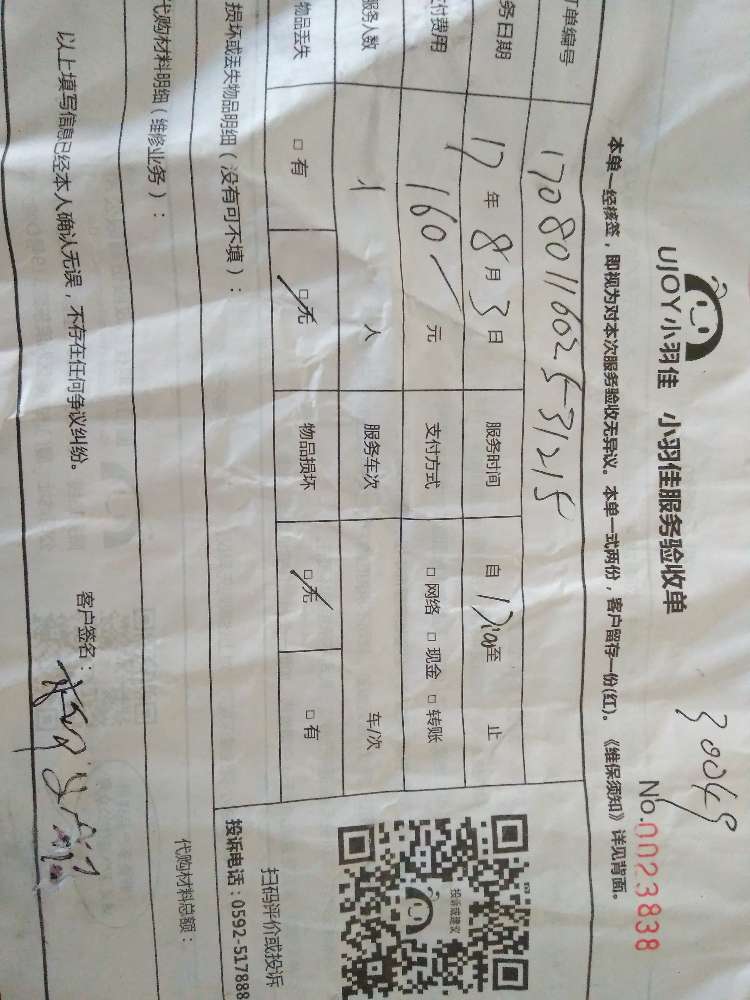 30045
UJOY小羽佳 小羽佳服务验收单
No.0023838
本单一经核签，即视为对本次服务验收无异议。本单一式两份，客户留存一份(红)。《维保须知》详见背面。
订单编号 1708011602531215
务日期 17年8月3日 服务时间 自 至 止
付费用 160 元 支付方式 □网络 □现金 □转账
服务人数 1 人 服务车次 车/次
物品丢失 □有 □无 物品损坏 □无 □有
损坏或丢失物品明细（没有可不填）：
投诉或建议
扫码评价或投诉
投诉电话：0592-517888
代购材料明细（维修业务）：
代购材料总额：
以上填写信息已经本人确认无误，不存在任何争议纠纷。
客户签名：